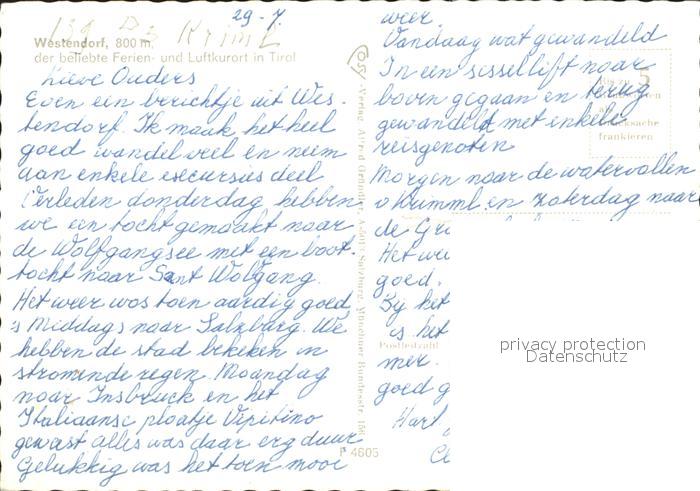 29-7.
Westendorf, 800 m,
der beliebte Ferien- und Luftkurort in Tirol
Lieve Ouders
Even ein berichtje uit Wes-
tendorf. Ik maak het heel
goed wandel veel en neem
aan enkele excursies deel
Verleden donderdag hebben
we een tocht gemaakt naar
de Wolfgangsee met een boot-
tocht naar Sant Wolgang.
Het weer was toen aardig goed
's Middags naar Salzburg. We
hebben de stad bekeken in
stromende regen. Maandag
naar Insbruck en het
Italiaanse plaatje Vipitino
geweest alles was daar erg duur
Gelukkig was het toen mooi
P 4605
weer.
Vandaag wat gewandeld
In een sessellift naar
boven gegaan en terug
gewandeld met enkele
reisgenoten
5
frankieren
Morgen naar de watervallen
v Krumml en zaterdag naar
de Gr
Het we
goed.
Bij het
is het
Postleitzahl
mer.
goed g
Hart
privacy protection
Datenschutz